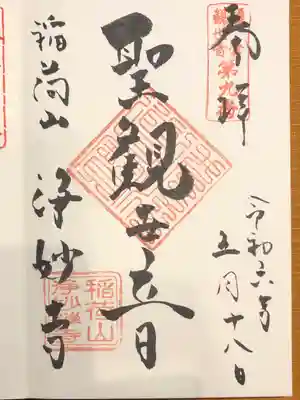 奉拝
第九番
令和六年
五月十八日
聖観世音
稲荷山
浄妙寺
稲荷山
浄妙禅寺